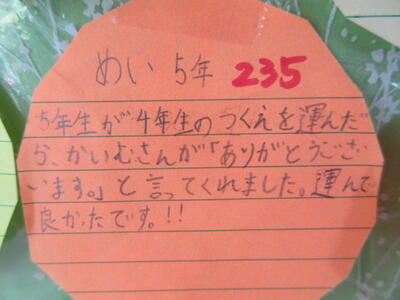 めい 5年 235
5年生が4年生のつくえを運んだ
ら、かいむさんが「ありがとうござ
います。」と言ってくれました。運んで
良かったです。!!